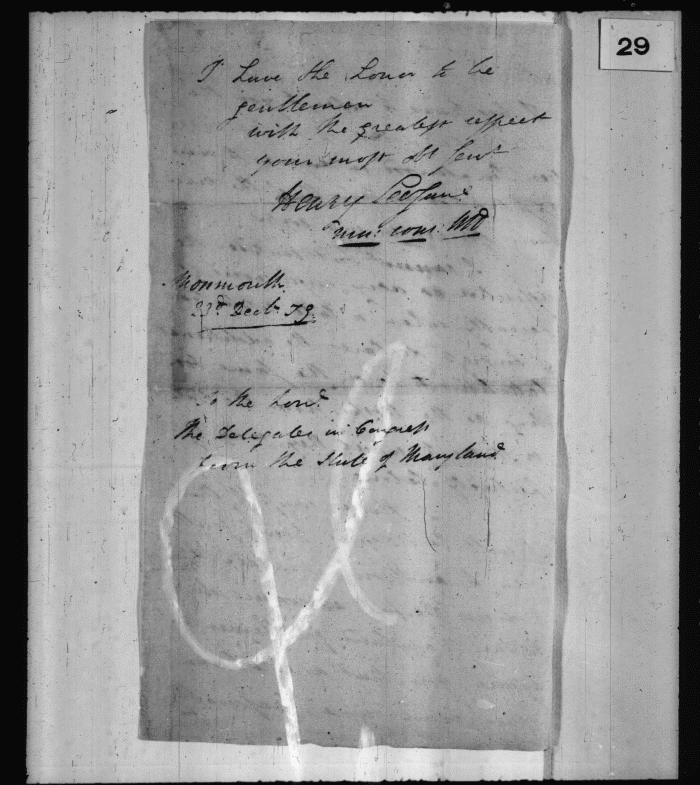 29
I have the honor to be
gentlemen
with the greatest respect
your most obt Servt
Henry Lee Junr
Com: Md
Monmouth
23d Decbr 79.
To the Honl
The Delegates in Congress
from the State of Maryland